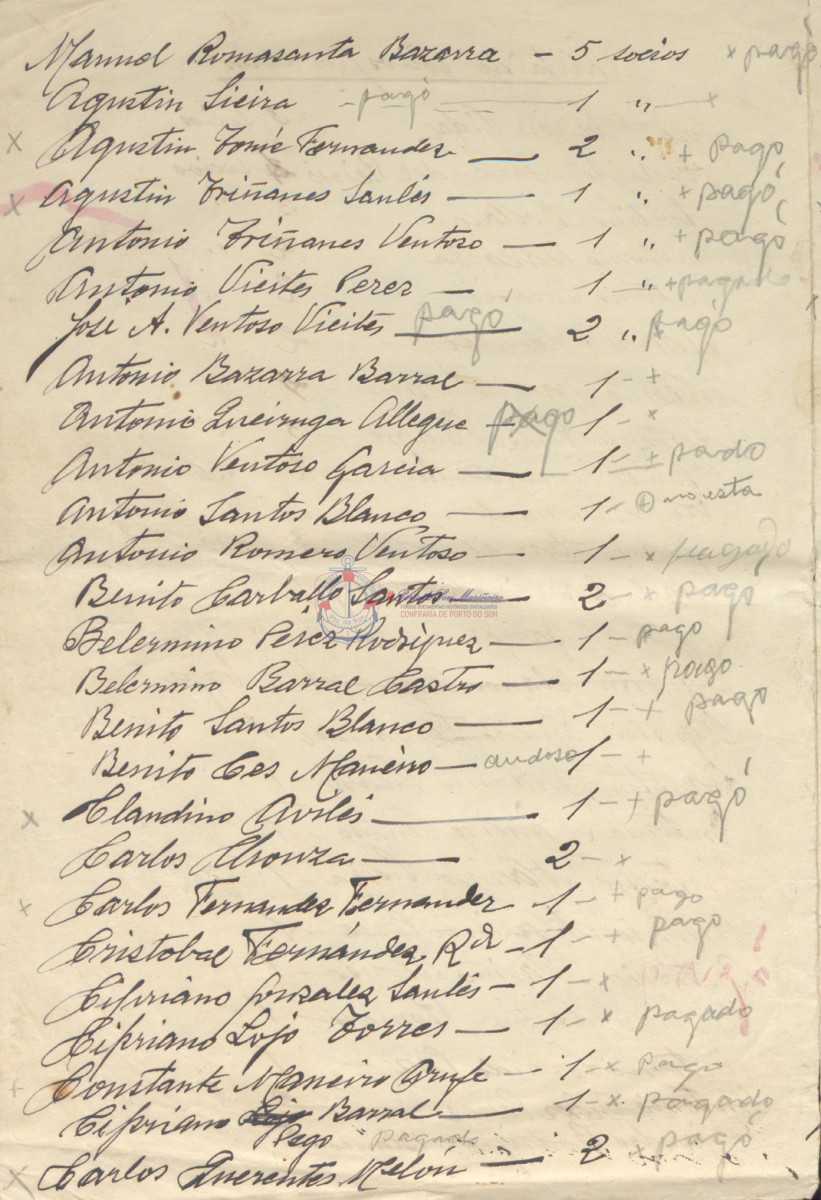 Manuel Romasanta Bazarra - 5 socios x pagó
Agustin Sieira - pagó - 1 " - x
x Agustin Tomé Fernandez - 2 " + pagó
x Agustin Triñanes Saulés - 1 " x pagó
Antonio Triñanes Ventoso - 1 " + pagó
Antonio Vieites Perez - 1 " + pagado
José A. Ventoso Vieites - pagó 2 " x pagó
Antonio Bazarra Barral - 1 - +
Antonio Queiruga Allegue - pago 1 - x
Antonio Ventoso Garcia - 1 - + pardo
Antonio Santos Blanco - 1 - + no esta
Antonio Romero Ventoso - 1 - x pagado
Benito Carballo Santos - 2 - x pagó
CONFRARIA DE PORTO DO SON
Belermino Peréz Rodriguez - 1 - pago
Belermino Barral Castro - 1 - x pago
Benito Santos Blanco - 1 - + pagó
Benito Ces Maneiro - 1 - +
x Claudino Avilés - 1 - + pagó
Carlos Chouza - 2 - x
x Carlos Fernandez Fernandez - 1 - + pago
Cristobal Fernández Rdz - 1 - + pago
Cipriano Gonzalez Saulés - 1 - x
Cipriano Lojo Torres - 1 - x pagado
+ Constante Maneiro - 1 - x pago
Cipriano Lojo Barral - 1 - x pagado
Pego pagado
x Carlos Querentes Melón - 2 - x pagó